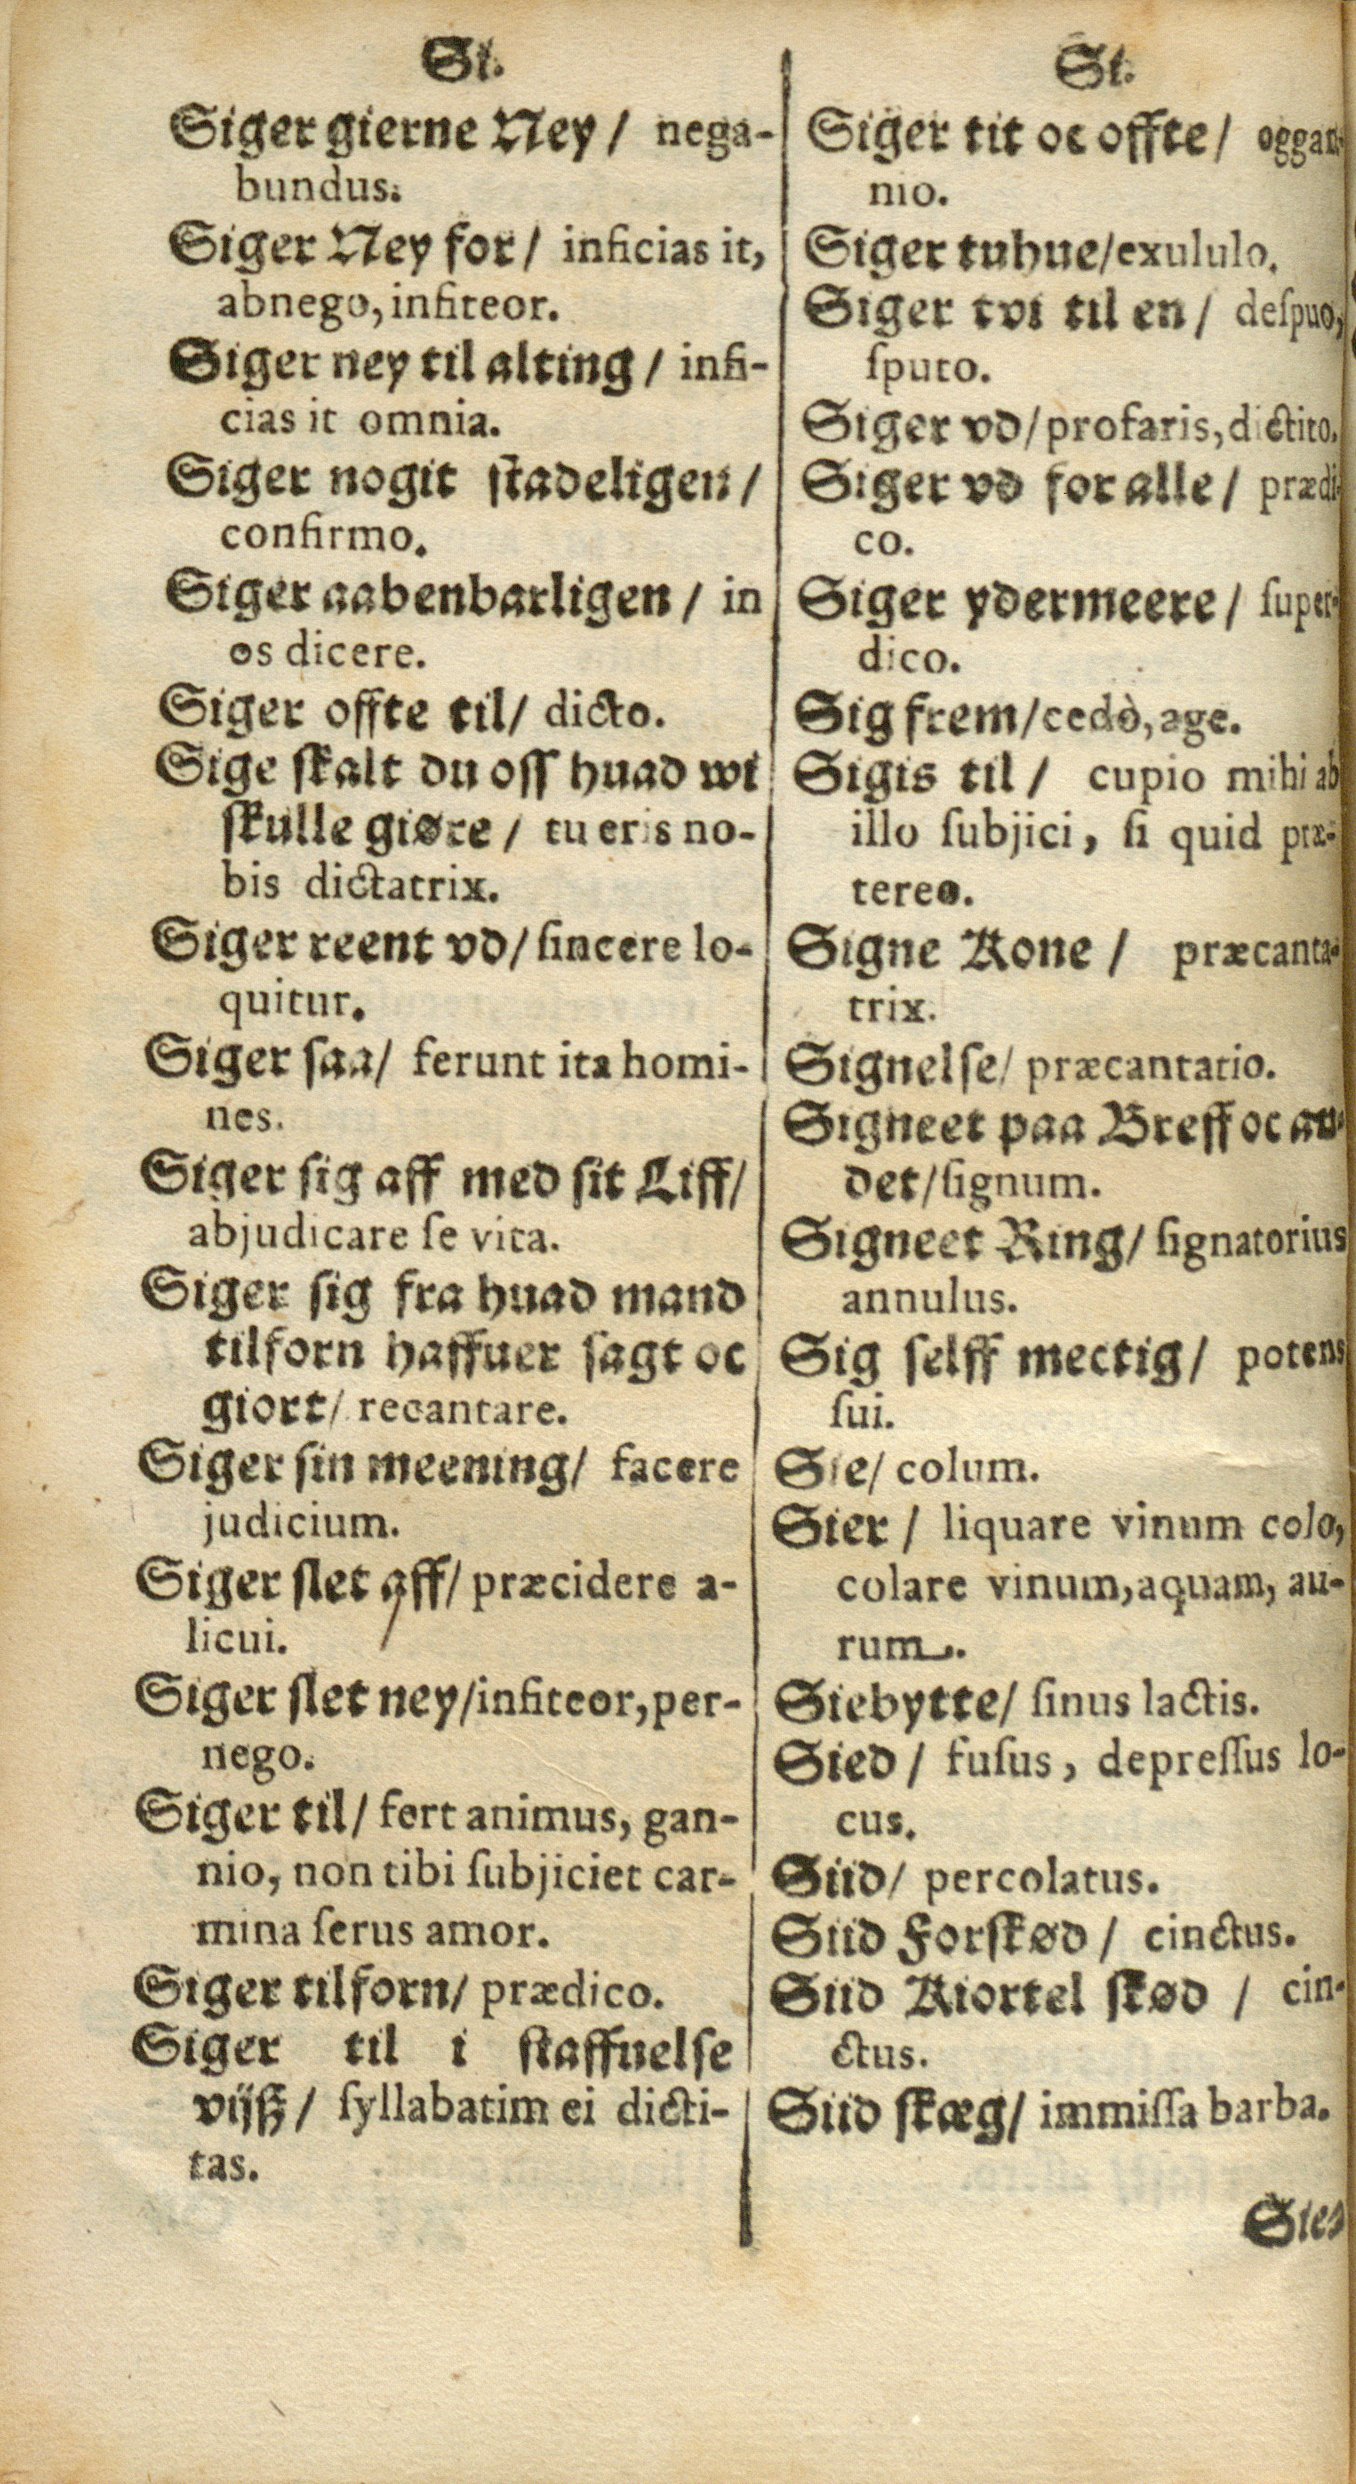 Si.
Siger gierne Ney / nega-
bundus.
Siger Ney for / inficias it,
abnego, infiteor.
Siger ney til alting / infi-
cias it omnia.
Siger nogit stadeligen /
confirmo.
Siger aabenbarligen / in
os dicere.
Siger offte til / dicto.
Sige skalt du oss huad wi
skulle giøre / tu eris no-
bis dictatrix.
Siger reent vd / sincere lo-
quitur.
Siger saa / ferunt ita homi-
nes.
Siger sig aff med sit Liff /
abjudicare se vita.
Siger sig fra huad mand
tilforn haffuer sagt oc
giort / recantare.
Siger sin meening / facere
judicium.
Siger slet aff / præcidere a-
licui.
Siger slet ney / infiteor, per-
nego.
Siger til / fert animus, gan-
nio, non tibi subjiciet car-
mina serus amor.
Siger tilforn / prædico.
Siger til i staffuelse
vijß / syllabatim ei dicti-
tas.
Si.
Siger tit oc offte / oggan-
nio.
Siger tuhue / exululo.
Siger tvi til en / despuo,
sputo.
Siger vd / profaris, dictito.
Siger vd for alle / prædi-
co.
Siger ydermeere / super-
dico.
Sig frem / cedò, age.
Sigis til / cupio mihi ab
illo subjici, si quid præ-
tereo.
Signe Kone / præcanta-
trix.
Signelse / præcantatio.
Signeet paa Breff oc an-
det / signum.
Signeet Ring / signatorius
annulus.
Sig selff mectig / potens
sui.
Sie / colum.
Sier / liquare vinum colo,
colare vinum, aquam, au-
rum.
Siebytte / sinus lactis.
Sied / fusus, depressus lo-
cus.
Siid / percolatus.
Siid Forskød / cinctus.
Siid Kiortel skød / cin-
ctus.
Siid skæg / immissa barba.